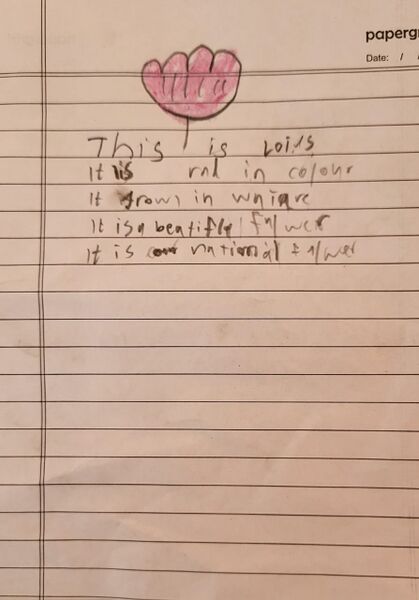 papergr
Date: / /
This is Loius
It is rad in colour
It grows in waiare
It is a beatifly falwer
It is our national falwer